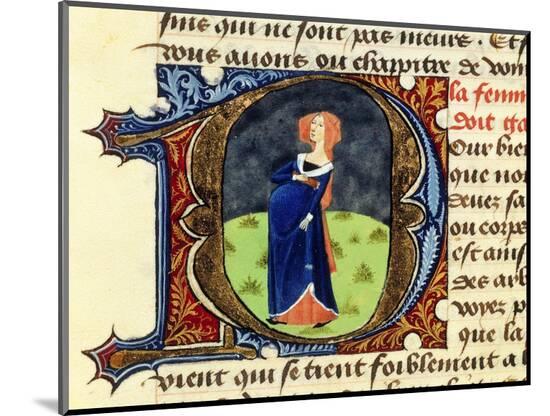 suis qui ne sont pas meurs. Et
vous auons ou chappitre de vou
la femm
doit ga
Our bien
que nou
deuez sa
ou corps
est ainsi
des arb
voyez p
que la
vient qui se tient foiblement a l